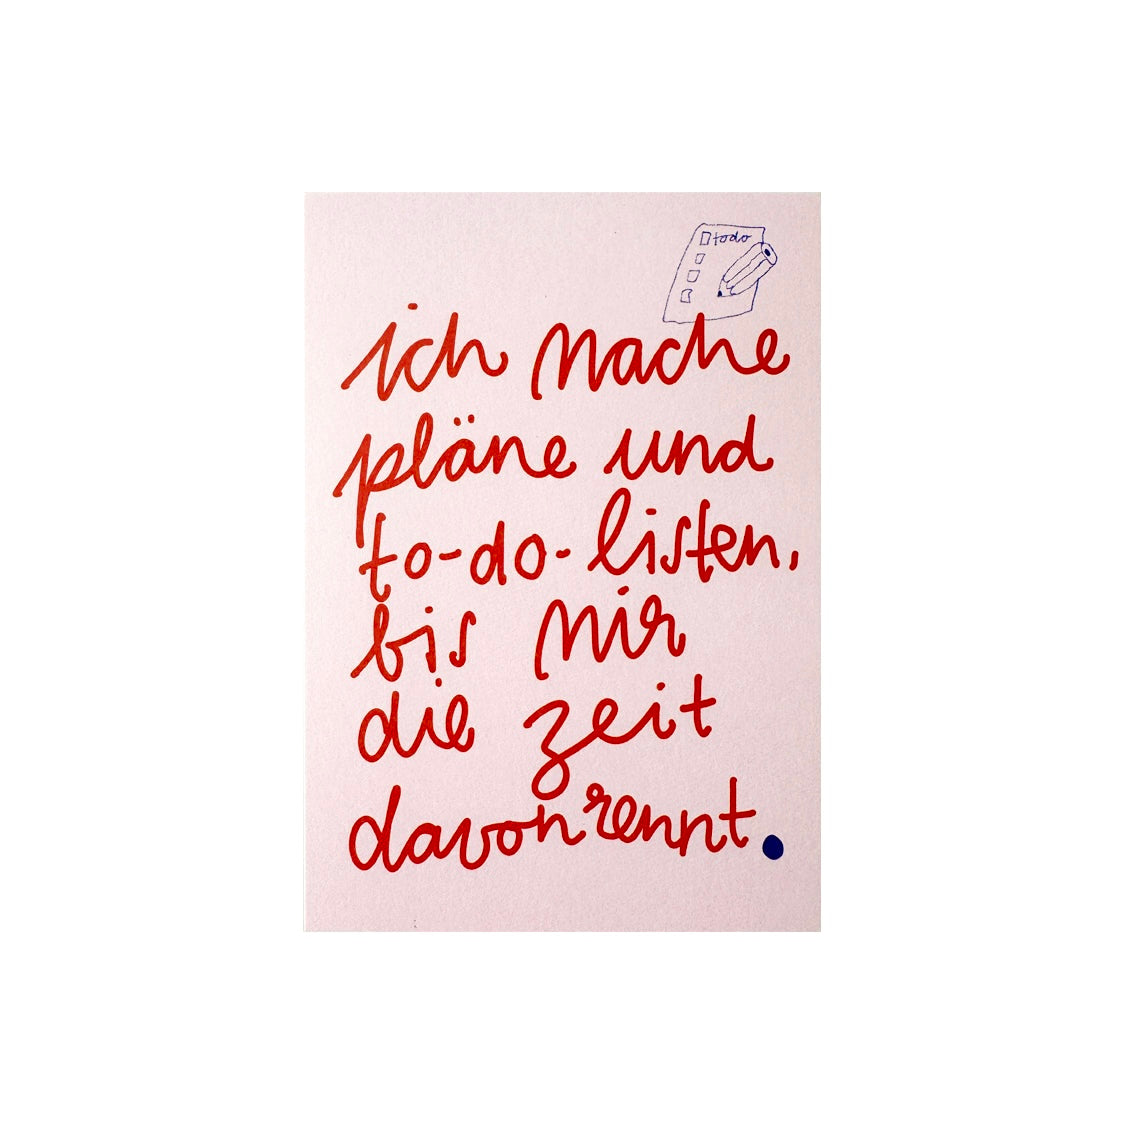 todo
ich mache
pläne und
to-do-listen,
bis mir
die zeit
davonrennt.